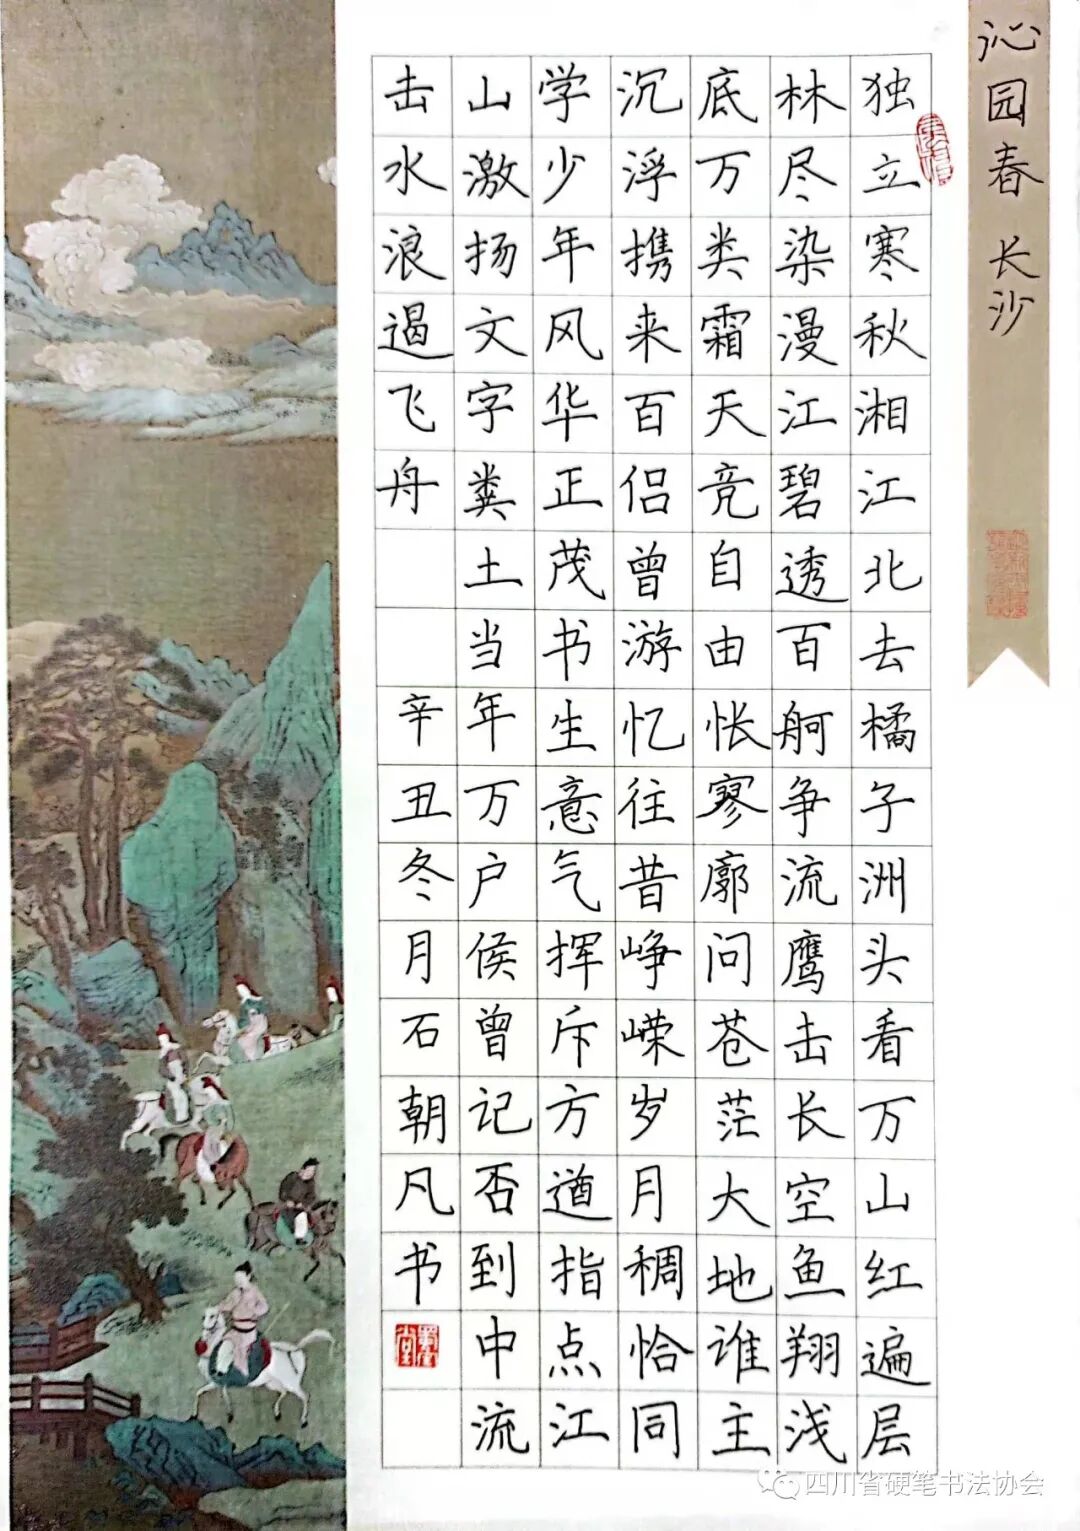 沁园春 长沙
独立寒秋湘江北去橘子洲头看万山红遍层
林尽染漫江碧透百舸争流鹰击长空鱼翔浅
底万类霜天竞自由怅寥廓问苍茫大地谁主
沉浮携来百侣曾游忆往昔峥嵘岁月稠恰同
学少年风华正茂书生意气挥斥方遒指点江
山激扬文字粪土当年万户侯曾记否到中流
击水浪遏飞舟
辛丑冬月石朝凡书
四川省硬笔书法协会